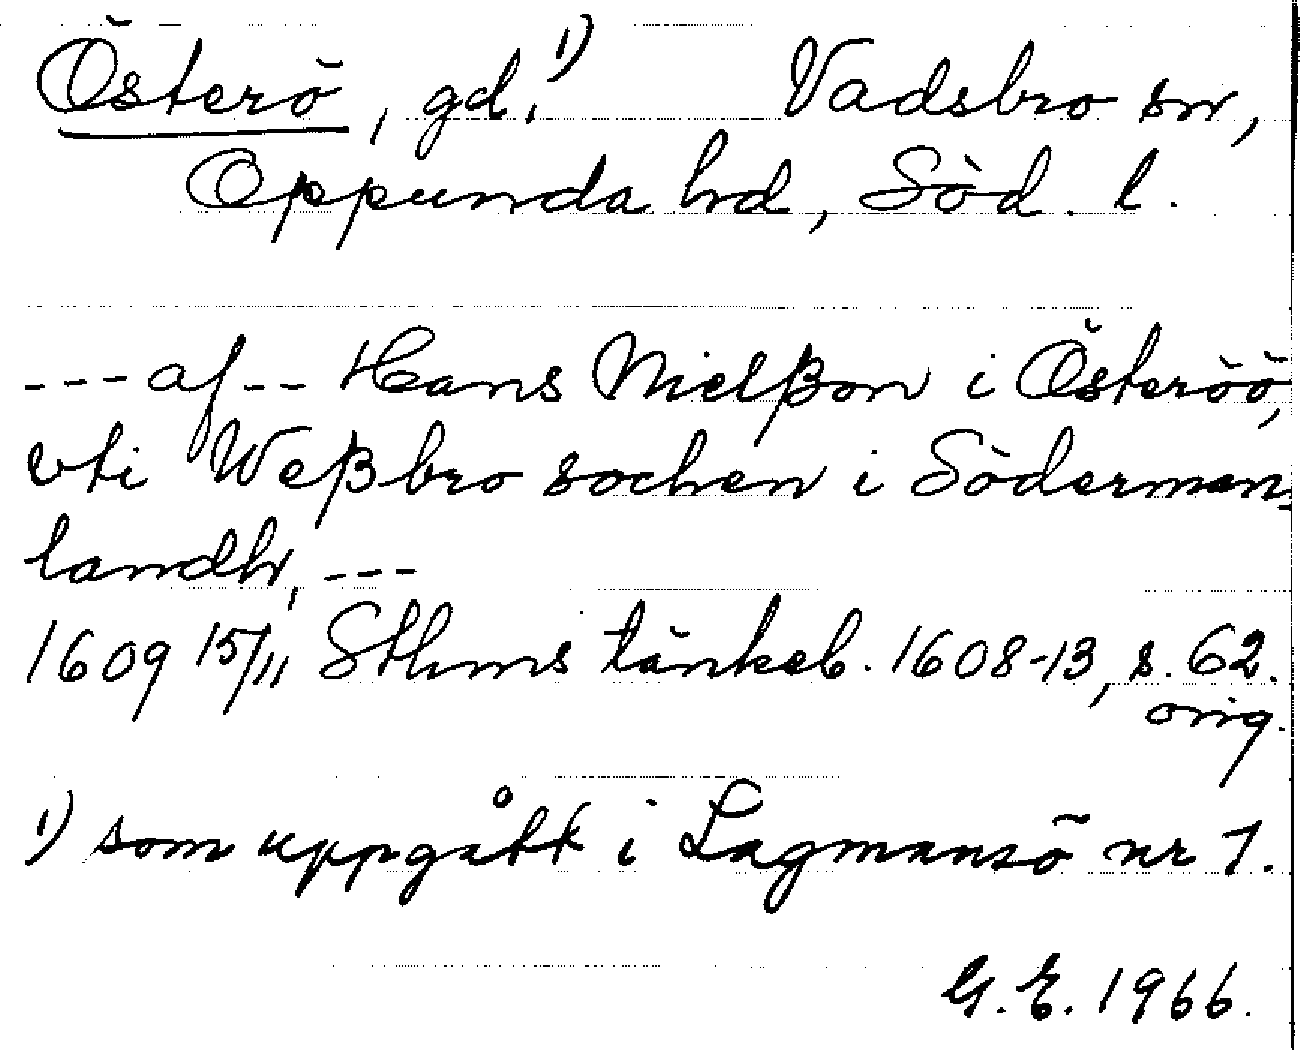 Österö, gd.¹⁾ Vadsbro sn,
Oppunda hd, Söd. l.
---af-- Hans Nielßon i Österöö,
vti Weßbro sochen i Söderman-
landh, ---
1609 15/11 Sthms tänkeb. 1608-13, s. 62.
orig.
¹⁾ som uppgått i Lagmansö nr 1.
G.E. 1966.